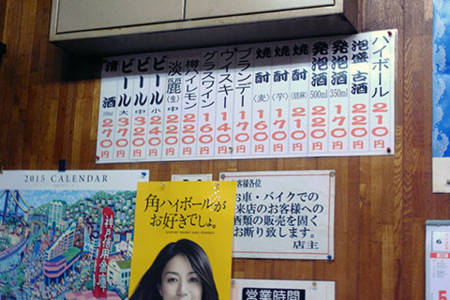 ハイボール 270円
泡盛古酒 220円
発泡酒 350ml 170円
発泡酒 500ml 220円
焼酎 210円
焼酎〈芋〉 170円
焼酎〈麦〉 160円
ブランデー 170円
ウイスキー 140円
グラスワイン 160円
樽イレモン 220円
淡麗(生)中 220円
ビール 小 240円
ビール 中 320円
ビール 大 370円
清酒 230円
2015 CALENDAR
角ハイボールが
お好きでしょ。
お客様各位
お車・バイクでの
来店のお客様への
酒類の販売を固く
お断り致します。
店主
営業時間
6
5